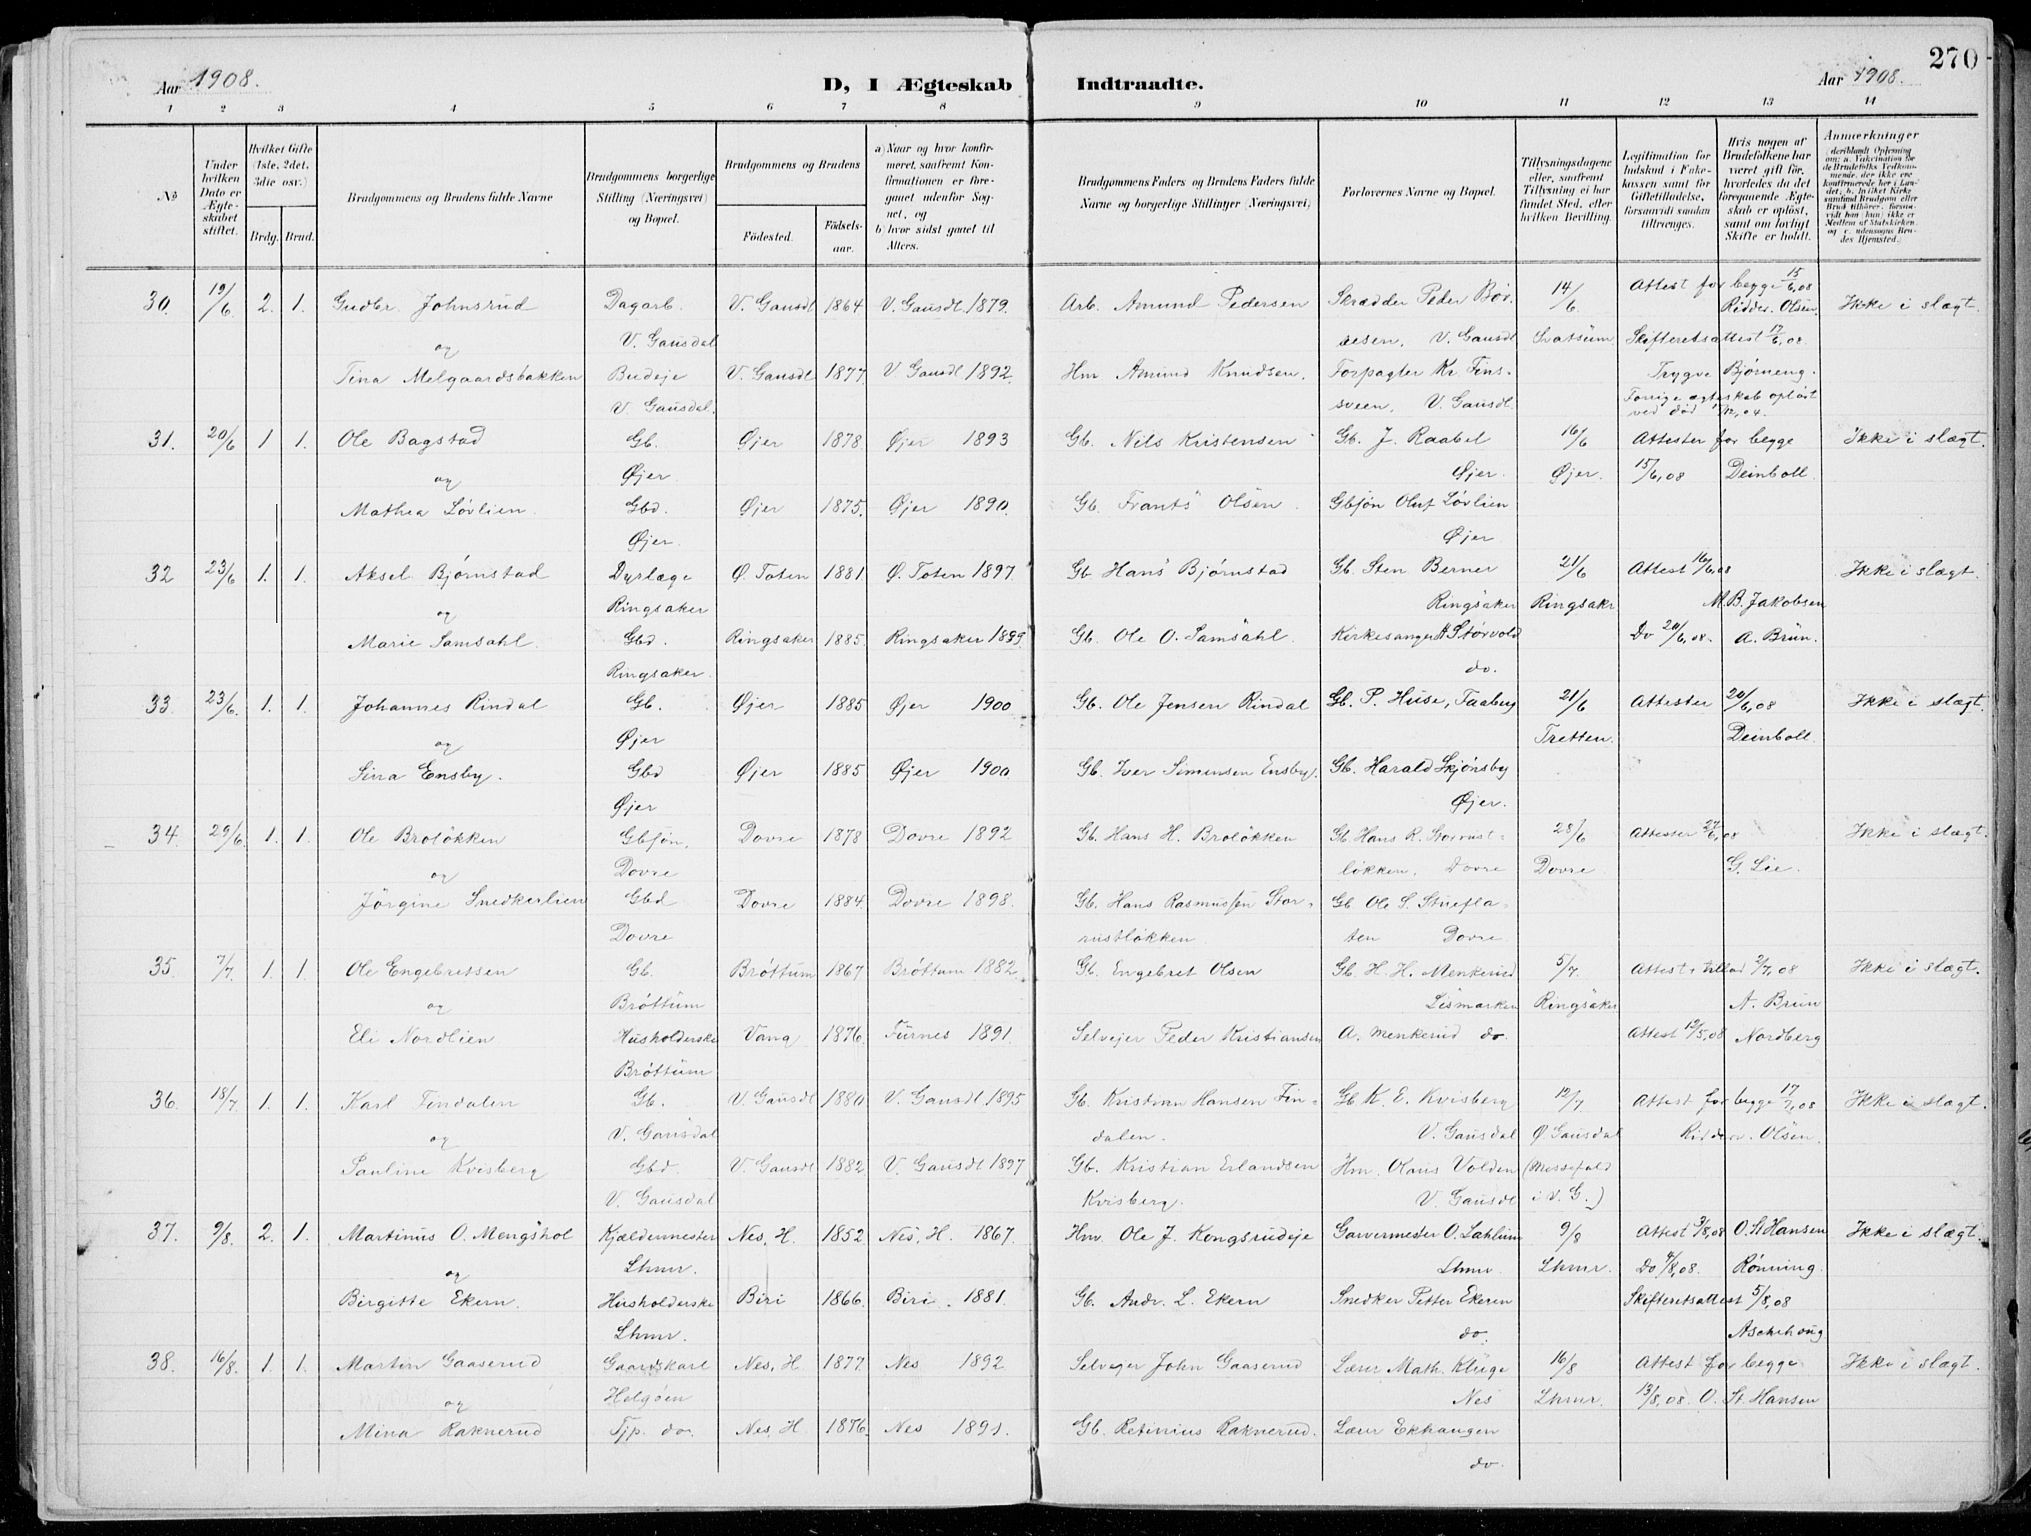 270
Aar 1908.
D, I Ægteskab Indtraadte.
Aar 1908.
1 2 3 4 5 6 7 8 9 10 11 12 13 14
No
Under hvilken Dato er Ægteskabet stiftet.
Hvilket Gifte (1ste, 2det, 3die osv.)
Brdg. Brud.
Brudgommens og Brudens fulde Navne
Brudgommens borgerlige Stilling (Næringsvei) og Bopæl.
Brudgommens og Brudens
Fødested. Fødselsaar.
a) Naar og hvor konfirmeret, saafremt Konfirmationen er foregaaet udenfor Sognet, og
b) hvor sidst gaaet til Alters.
Brudgommens Faders og Brudens Faders fulde Navne og borgerlige Stillinger (Næringsvei.)
Forlovernes Navne og Bopæl.
Tillysningsdagene eller, saafremt Tillysning ei har fundet Sted, efter hvilken Bevilling.
Legitimation for Indskud i Enkekassen samt for Giftetilladelse, forsaavidt saadan tiltrænges.
Hvis nogen af Brudefolkene har været gift før, hvorledes da det foregaaende Ægteskab er opløst, samt om lovligt Skifte er holdt.
Anmerkninger
30. 19/6 2. 1. Gudbr. Johnsrud Dagarb. V. Gausdl 1864 V. Gausdl. 1879. Arb. Amund Pedersen Skrædder Peter Bør- 14/6. Attest for begge 15/6,08 Ikke i slægt.
og V. Gausdal sesen, V. Gausdl Svatsum. Skifteretsattest 17/6,08. Ridder. Olsen
Tina Melgaardsbakken Budeje V. Gausdl 1877. V. Gausdl 1892. Hm Amund Knudsen. Forpagter Kr. Fins- Trygve Bjørneng.
V. Gausdal. sveen, V. Gausdl. Forrige ægteskab opløst ved død
31. 20/6 1. 1. Ole Bagstad Gb. Øjer 1878. Øjer 1893 Gb. Nils Kristensen Gb. J. Raabøl 16/6 Attester for begge Ikke i slægt.
og Øjer. Øjer. Øjer. 15/6,08 Deinboll.
Mathea Løvlien. Gbd. Øjer 1875. Øjer 1890. Gb. Frants Olsen. Gbsøn Oluf Løvlien
Øjer. Øjer.
32 23/6 1. 1. Aksel Bjørnstad Dyrlæge Ø. Toten 1881. Ø. Toten 1897. Gb Hans Bjørnstad Gb. Sten Berner 21/6 Attest 16/6,08 Ikke i slægt.
og Ringsaker Ringsaker Ringsakr M. B. Jakobsen
Marie Samsahl. Gbd. Ringsaker 1885. Ringsaker 1899. Gb. Ole O. Samsahl. Kirkesanger Størvold Do 20/6,08. A. Brun.
Ringsaker. do.
33. 23/6. 1. 1. Johannes Rindal Gb. Øjer 1885 Øjer 1900 Gb. Ole Jensen Rindal Gb. P. Huse, Faaberg 21/6 Attester 20/6,08 Ikke i slægt.
og Øjer Tretten. Deinboll.
Sina Ensby. Gbd Øjer 1885 Øjer 1900 Gb. Iver Simensen Ensby. Gb. Harald Skjønsby
Øjer Øjer.
34. 29/6. 1. 1. Ole Broløkken Gbsøn, Dovre 1878 Dovre 1892 Gb. Hans H. Broløkken Gb Hans R. Storrust- 28/6 Attester 27/6,08 Ikke i slægt.
og Dovre løkken, Dovre Dovre G. Lie.
Jörgine Snedkerlien Gbd Dovre 1884. Dovre 1898. Gb. Hans Rasmussen Stor- Gb Ole S. Stuefla-
Dovre rustløkken. ten Dovre.
35. 7/7. 1. 1. Ole Engebretsen Gb. Brøttum 1867 Brøttum 1882. Gb. Engebret Olsen Gb. H. H. Menkerud 5/7. Attest + tillad 2/7,08 Ikke i slægt.
og Brøttum Lismarken Ringsaker A. Brun
Eli Nordlien Husholderske Vang 1876. Furnes 1891. Selvejer Peder Kristiansen A. Menkerud do. Attest 19/5,08 Nordberg
Brøttum
36. 18/7. 1. 1. Karl Findalen Gb. V. Gausdl 1880 V. Gausdl 1895 Gb. Kristian Hansen Fin- Gb K. E. Kvisberg 12/7 Attest for begge 17/7,08 Ikke i slægt.
og V. Gausdal dalen. V. Gausdal Ø. Gausdal Ridder. Olsen.
Pauline Kvisberg Gbd. V. Gausdl 1882 V. Gausdl 1897 Gb. Kristian Erlandsen Hm. Olaus Volden (Messefald
V. Gausdal Kvisberg. V. Gausdl i V. G.)
37. 9/8. 2. 1. Martinus O. Mengshol Kjældermester Nes, H. 1852. Nes, H. 1867. Hm. Ole J. Kongsrudeje Garvermester O. Lahlum 9/8 Attest 3/8,08 O. St. Hansen Ikke i slægt.
og Lhmr. Lhmr. Lhmr. Do 4/8,08. Rønning.
Birgitte Ekern. Husholderske Biri 1866. Biri. 1881. Gb. Andr. L. Ekern Snedker Petter Ekeren Skifteretsattest 5/8,08
Lhmr. do. Aschehoug
38. 16/8. 1. 1. Martin Gaaserud Gaardskarl Nes, H. 1877. Nes 1892. Selvejer John Gaaserud Lærer Math. Kluge 16/8 Attest for begge Ikke i slægt.
og Helgøen Nes Lhmr. 13/8,08. O. St. Hansen
Mina Raknerud Tjp. do. Nes, H. 1876. Nes 1891. Gb. Retinius Raknerud. Lærer Ekhaugen
do.